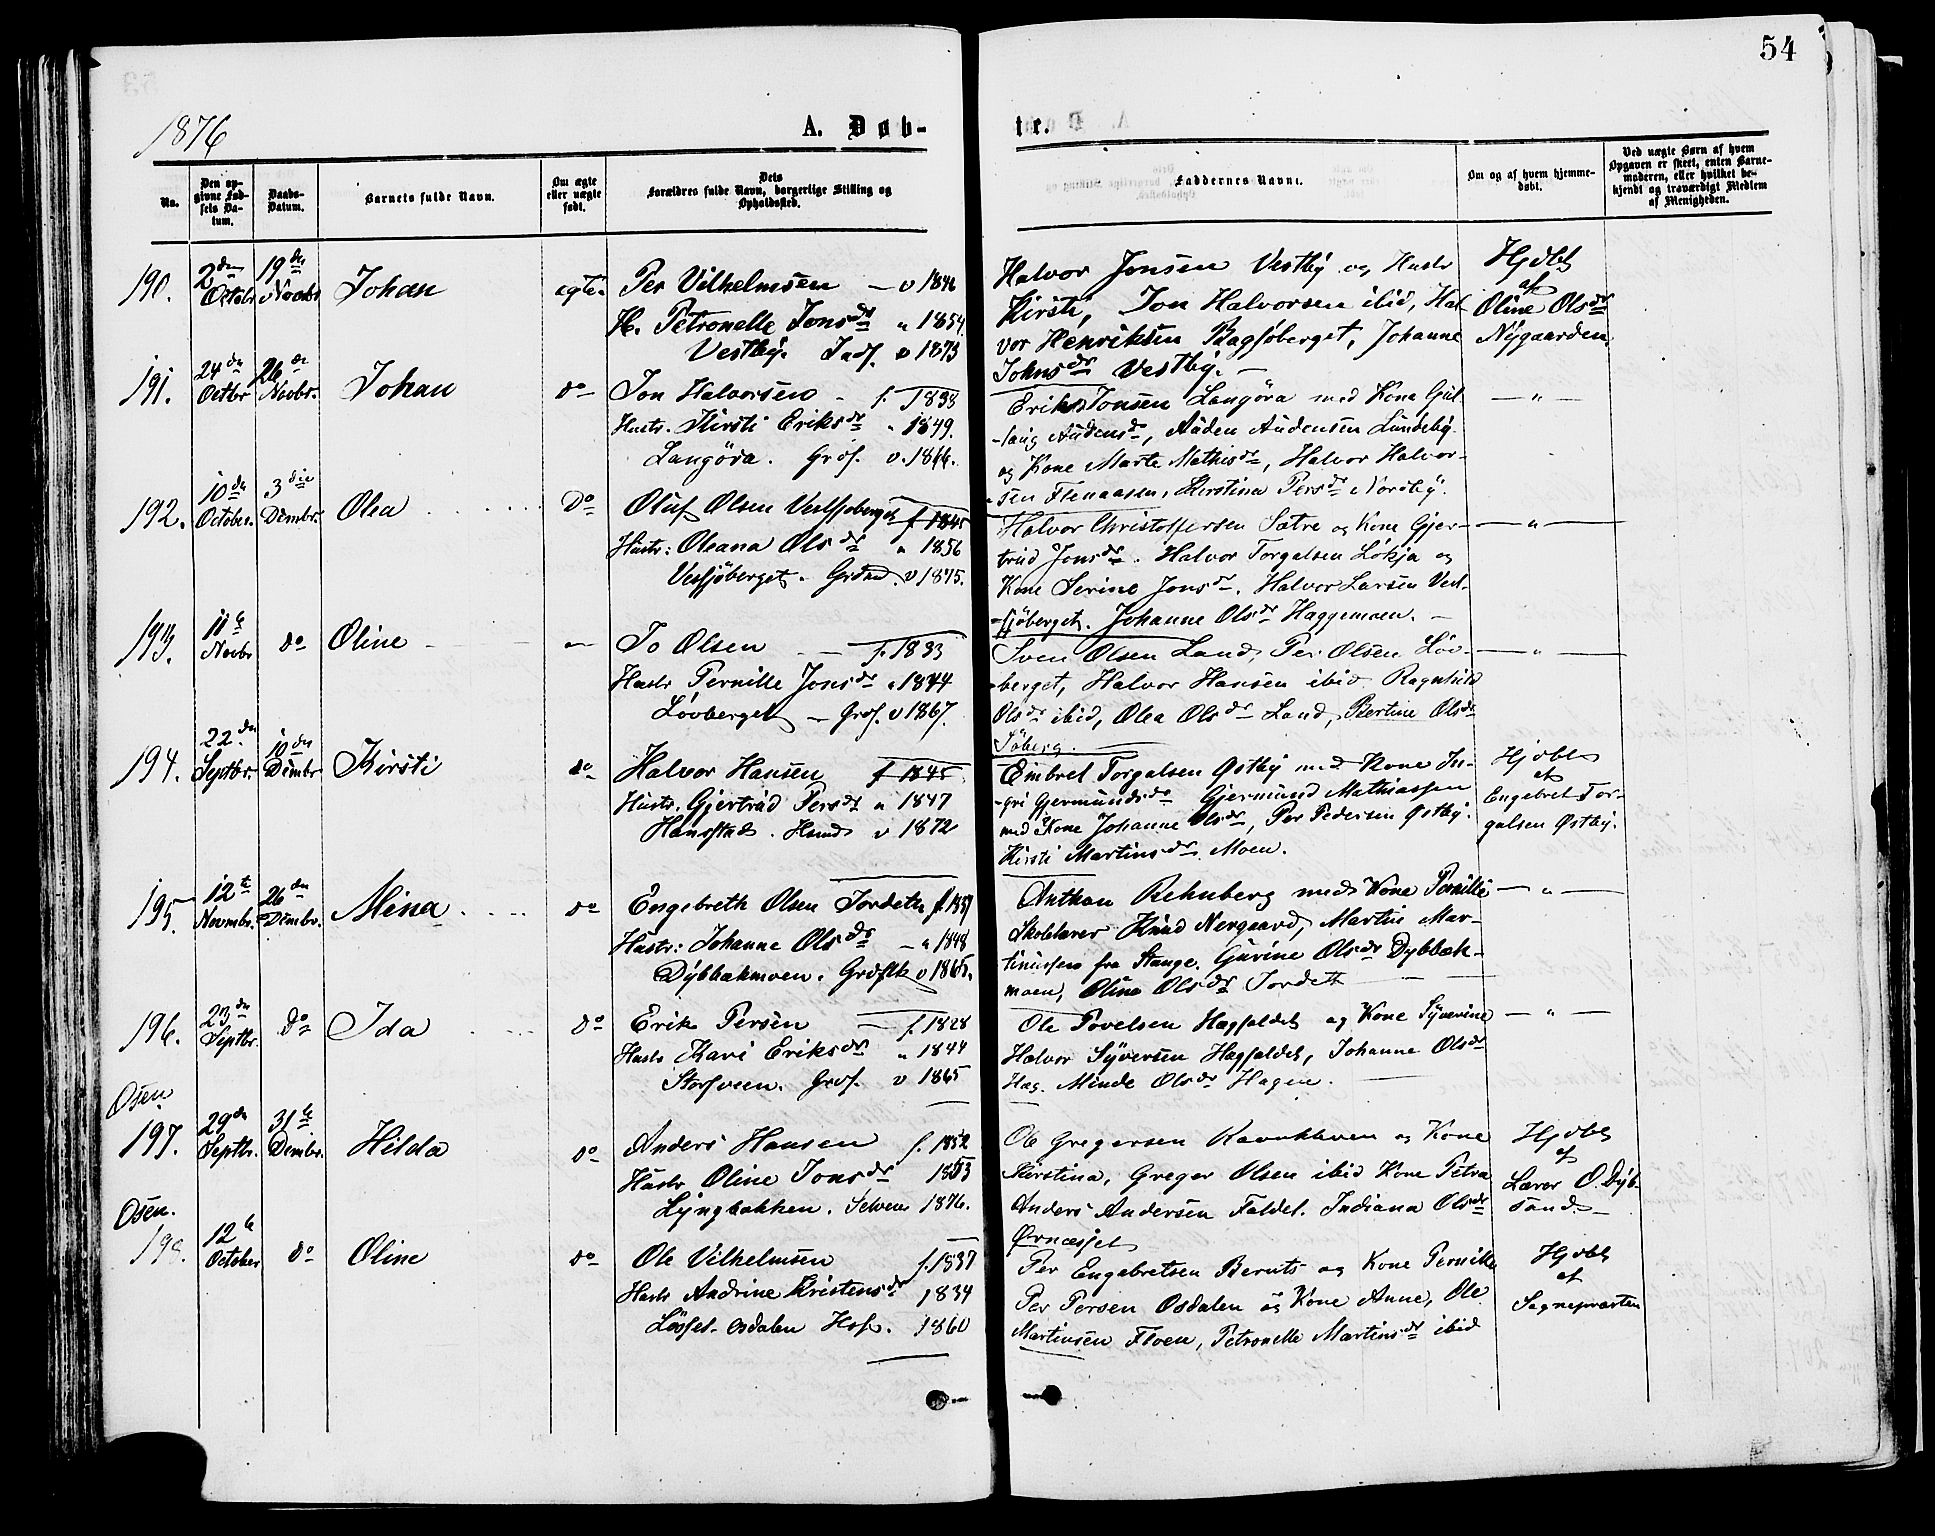 54
1876
A. Døb-
te.
No.
Den opgivne Fødsels Datum.
Daabs-Datum.
Barnets fulde Navn.
Om ægte eller uægte født.
Dets Forældres fulde Navn, borgerlige Stilling og Opholdssted.
Faddernes Navne.
Om og af hvem hjemmedøbt.
Ved uægte Børn af hvem Opgaven er skeet, enten Barnemoderen, eller hvilket bekjendt og troværdigt Medlem af Menigheden.
190. 2den Octobr 19de Novbr Johan ægte. Per Vilhelmsen — v 1846
H. Petronelle Jonsdr " 1854.
Vestby. Inds. v 1873
Halvor Jonsen Vestby og Hustr
Kirsti, Jon Halvorsen ibid, Hal-
vor Henriksen Bagsjøberget, Johanne
Johnsdr Vestby. —
Hjdbt
af
Oline Olsdr
Nygaarden.
191. 24de Octbr 26de Novbr. Johan do Jon Halvorsen - f. 1838
Hustr. Kirsti Eriksdr " 1849.
Langøra. Grdf. v. 1866.
Erik Jonsen Langøra med Kone Gul-
-laug Audensdr, Auden Audensen Lundeby
og Kone Marte Mathisdr, Halvor Halvor-
sen Flenaasen, Kerstina Persdr Nordby.
— " —
192. 10de October. 3die Dcmbr. Olea do Oluf Olsen Vestsjøberget f. 1845
Hustr: Oleana Olsdr " 1856
Vestsjøberget. v 1875.
Halvor Christoffersen Sætre og Kone Gjer-
trud Jonsdr. Halvor Torgalsen Løkja og
Kone Serine Jonsdr. Halvor Larsen Vest-
-sjøberget. Johanne Olsdr Haggemoen. —
— " —
193. 11te Novbr do Oline — Jo Olsen — f. 1833
Hustr Pernille Jonsdr " 1844
Løvberget — Grdf. v 1867.
Sven Olsen Land, Per Olsen Løv-
-berget, Halvor Hansen ibid Ragnhild
Olsdr ibid, Olea Olsdr Land, Bertine Olsdr
Søberg.
— " —
194. 22den Septbr. 10den Dcmbr Kirsti do Halvor Hansen f 1845
Hustr. Gjertrud Persdr " 1847
Hansstad. Hsmd v 1872
Embret Torgalsen Østby med Kone In-
-gri Gjermundsdr Gjermund Mathiassen
med Kone Johanne Olsdr, Per Pedersen Østby.
Kirsti Martinsdr Moen.
Hjdbt
af
Engebret Tor-
galsen Østby.
195. 12te Novmbr. 26den Dcmbr. Mina do Engebreth Olsen Jordets f.
Hustr: Johanne Olsdr — " 1848
Dybbækmoen. v 1865.
Anthon Rehnberg med Kone Pernille
Skolelærer Knud Nergaard, Martin Mar-
tiniussen fra Stange. Gurine Olsdr Dybbæk-
moen, Olina Olsdr Jordett
— " —
196. 23de Septbr. do Ida do Erik Persen — f. 1828
Hustr Kari Eriksdr " 1844
Storsveen. Grdf. v 1865
Ole Povelsen Hagfaldet og Kone Syverine
Halvor Syversen Hagfaldet, Johanne Olsdr
Hag. Minde Olsdr Hagen.
— " —
Osen
197. 29de Septbr. 31te Dcmbr. Hilda do Anders Hansen f. 1852
Hustr Oline Jonsdr 1853
Lyngbakken. Selveier 1876.
Ole Gregersen Ravnkleven og Kone
Kirstina, Greger Olsen ibid Kone Petra
Anders Andersen Faldet. Indiana Olsdr
Ørnæsset
Hjdbt
af
Lærer O. Dyb-
sand.
Osen.
198. 12te October do Oline do Ole Vilhelmsen f. 1837
Hustr Andrine Kristensdr 1834
Løsset - Osdalen 1860
Per Engebretsen Bernts og Kone Pernille
Per Persen Osdalen og Kone Anne, Ole
Martinsen Floen, Petronelle Martinsdr ibid
Hjdbt
af
Sognepræsten